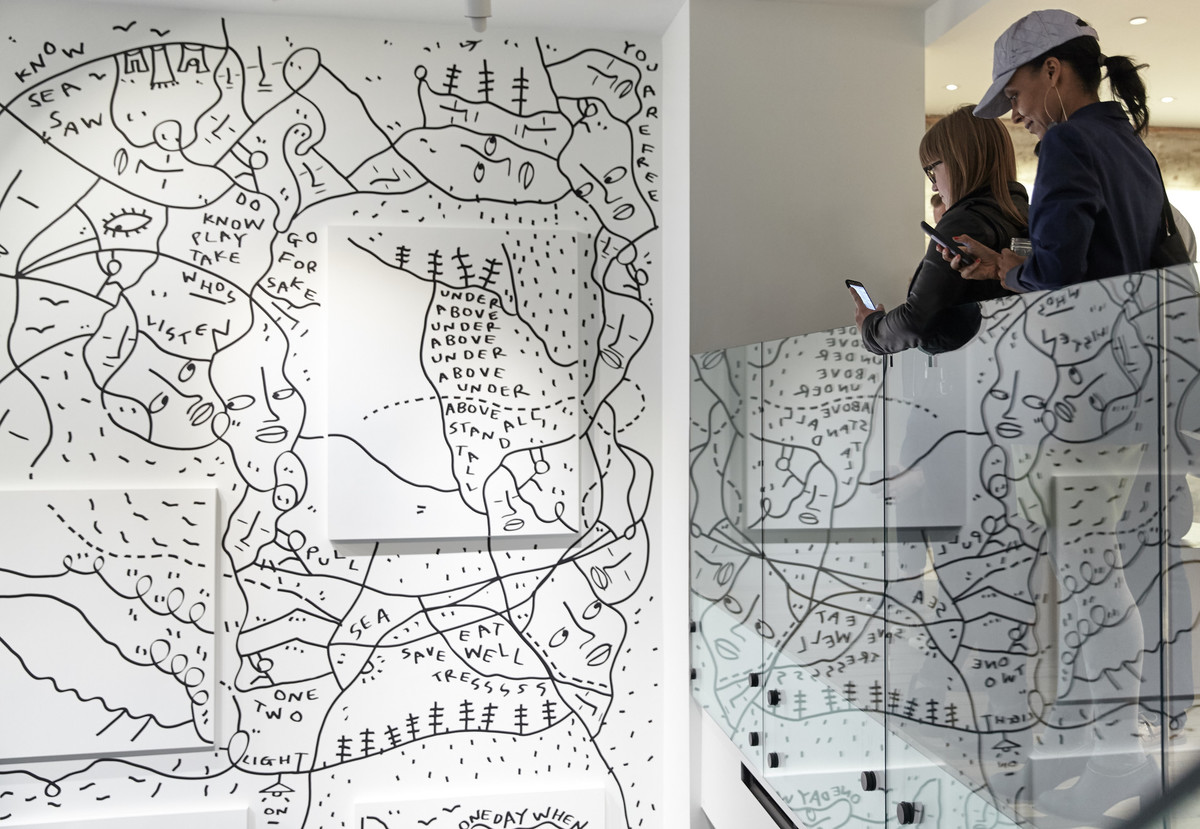 KNOW
SEA
SAW
YOU ARE FREE
DO
KNOW
PLAY
TAKE
GO
FOR
SAKE
WHOS
LISTEN
UNDER
ABOVE
UNDER
ABOVE
UNDER
ABOVE
UNDER
ABOVE ALL
STAND
TALL
PULL
SEA
EAT
WELL
SAVE
TRESSSSS
ONE
TWO
LIGHT
ON
ONE DAY WHEN